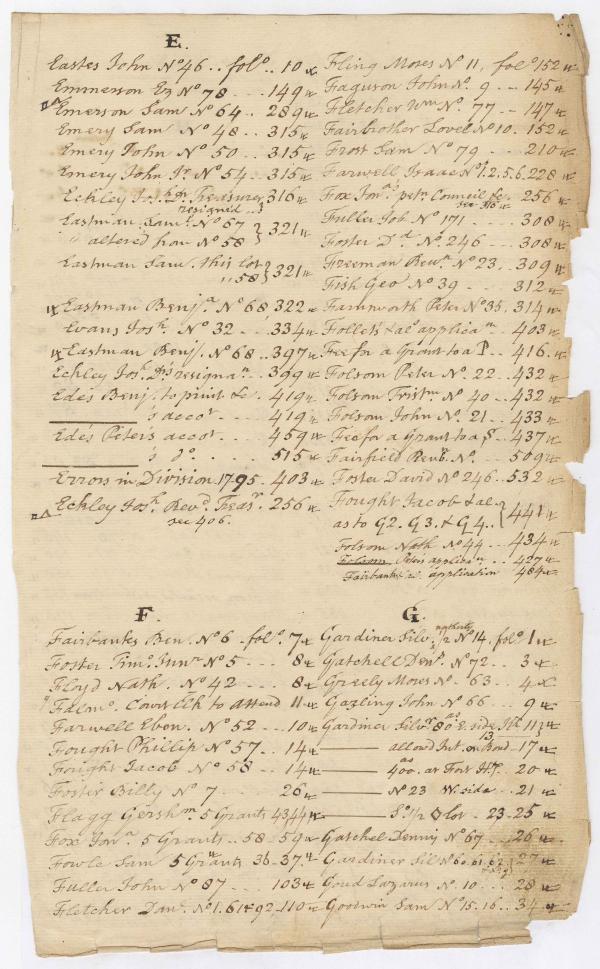 E.
Eastes John No 46 .. folo .. 10
Emmerson Ez No 78 --- 149
Emerson Sam No 64 .. 289
Emery Sam No 48 .. 315
Emery John No 50 .. 315
Emery John Jr No 54 .. 315
Eckley Josh Treasurer 316
resigned
Eastman Sam No 57
altered from No 58 } 321
Eastman Sam. this lot
58 } 321
Eastman Benja No 68 322
Evans Josh. No 32 -- 334
Eastman Benj. No 68 .. 397
Eckley Josh. resigna .. 399
Edes Benj. to print &c . 419
s accot .. 419
Edes Peter's accot .... 459
s do .... 515
Errors in Division 1795 . 403
Eckley Josh Revd. Treasr. 256
see 406.
Fling Moses No 11, folo 152
Faguson John No. 9 -- 145
Fletcher Wm No. 77 -- 147
Fairbrother Lovel No 10. 152
Frost Sam No 79 --- 210
Farwell Isaac No 1.2.5.6. 228
Fox Jon petn Council &c. 256
see 316
Fuller Job No 171 ... 308
Foster Dd No. 246 -- 308
Freeman No 23 .. 309
Fish Geo No 39 -- 312
Farnworth Peter No 35. 314
Follets & als applica .. 403
Fee for a Grant to a P. .. 416.
Folsom Peter No. 22 .. 432
Folsom Tristm No 40 .. 432
Folsom John No. 21 .. 433
Fee for a Grant to a .. 437
Fairfield No. -- 509
Foster David No 246 .. 532
Fought Jacob & al
as to G2. G3. & G4.. } 441
Folsom Nath No 44 .... 434
Folsom Peter applica .. 427
Fairbanks application 484
F
Fairbanks Ben. No 6 folo. 7
Foster Timo. Junr No 5 --- 8
Floyd Nath. No 42 --- 8
Falmo. Court Clk to attend 11
Farwell Eben. No 52 .. 10
Fought Phillip No 57 .. 14
Fought Jacob No 58 .. 14
Foster Billy No 7 --- 26
Flagg Gershm. 5 Grants 43 44
Fox Jon 5 Grants .. 58 - 59
Fowle Sam 5 Grants 36 - 37
Fuller John No 87 ... 103
Fletcher Dan. No 1. 61 & 92 - 110
G.
Gardiner Silv. 1/2 No 14. folo 1
Gatchell Denn. No 72 .. 3
Greely Moses No. 63 .. 4
Gazling John No 66 .. 9
Gardiner Silvr 80 as E. side 11
allowd Int. on Bond - 17
400 as at Fort Hx .. 20
No 23 W. side .. 21
So. 1/2 lot . 23 - 25
Gatchel Denny No 67 .. 26
Gardiner Sil No 60. 61. 62 27
Goud Lazarus No. 10 .. 28
Goodwin Sam No 15. 16 .. 34